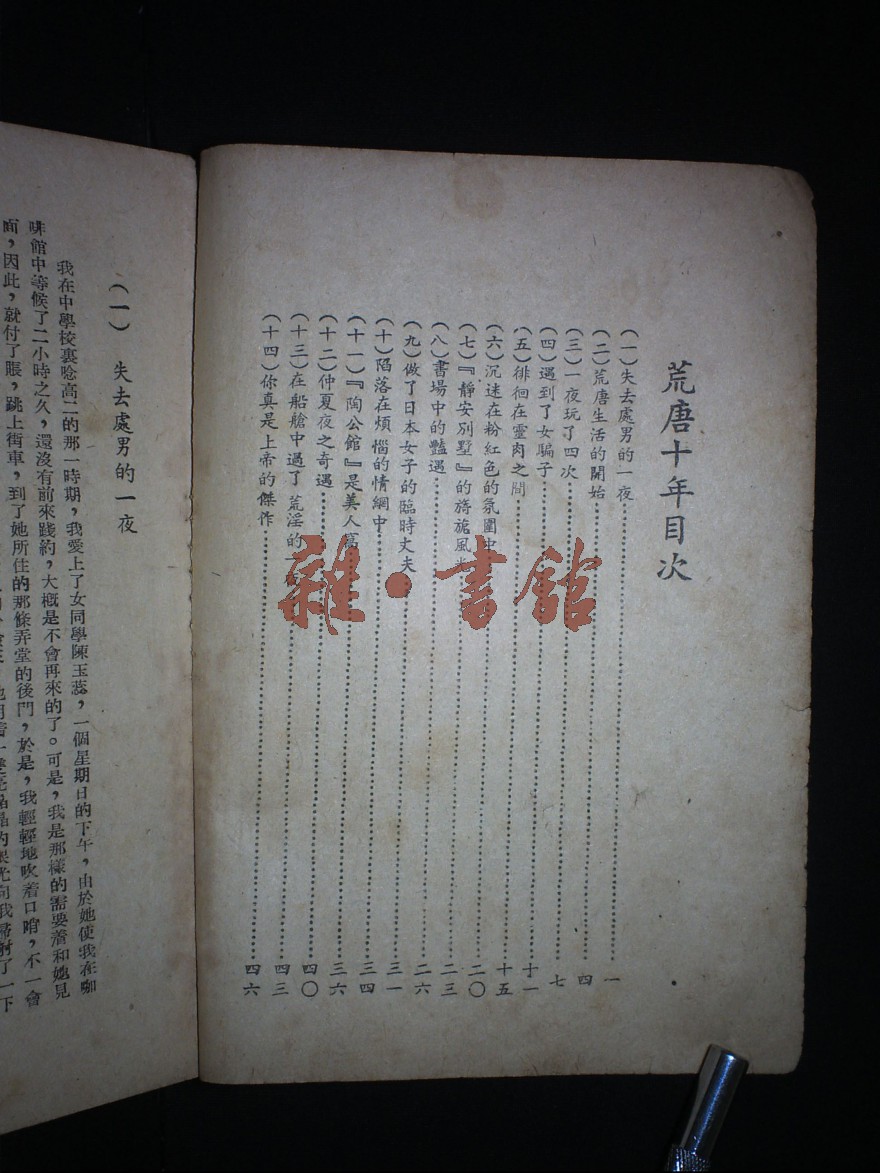 荒唐十年目次
(一)失去處男的一夜……一
(二)荒唐生活的開始……四
(三)一夜玩了四次……七
(四)遇到了女騙子……十一
(五)徘徊在靈肉之間……十五
(六)沉迷在粉紅色的氛圍中……二〇
(七)『靜安別墅』的旖旎風……二三
(八)書場中的豔遇……二六
(九)做了日本女子的臨時丈夫……三一
(十)陷落在煩惱的情網中……三四
(十一)『陶公館』是美人窩……三六
(十二)仲夏夜之奇遇……四〇
(十三)在船艙中過了荒淫的一夜……四三
(十四)你真是上帝的傑作……四六
雜·書館
(一) 失去處男的一夜
我在中學校裏唸高二的那一時期,我愛上了女同學陳玉蕊,一個星期日的下午,由於她使我在咖
啡館中等候了二小時之久,還沒有前來踐約,大概是不會再來的了。可是,我是那樣的需要着和她見
面,因此,就付了賬,跳上街車,到了她所住的那條弄堂的後門,於是,我輕輕地吹着口哨,不一會